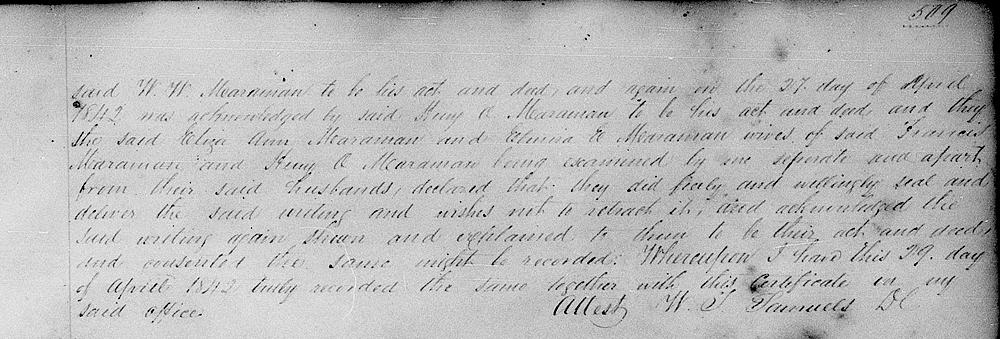 509
said W. W Maraman to be his act and deed, and again on the 27. day of April
1842 was acknowledged by said Henry C Maraman to be his act and deed, and they
the said Eliza Ann Maraman and E Maraman wives of said Francis
Maraman and Henry C Maraman being examined by me seperate and apart
from their said husbands, declared that they did freely and willingly seal and
deliver the said writing and wishes not to retract it, and acknowledged the
said writing again shewn and explained to them to be their act and deed,
and consented the same might be recorded: Whereupon I have this 29. day
of April 1842 truly recorded the same together with this Certificate in my
said office. Attest W. T Samuels DC